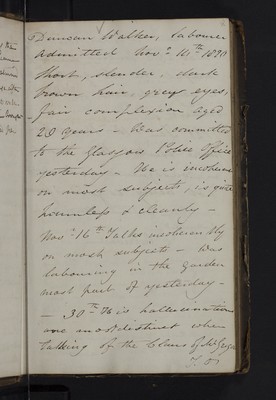 Duncan Walker, labourer
admitted Novr 14th 1820
Short, slender, dark
brown hair, grey eyes,
fair complexion aged
20 years - was committed
to the Glasgow Police Office
yesterday - He is incoherent
on most subjects, is quite
harmless & cleanly -
Novr 16th Talks incoherently
on most subjects - Was
labouring in the Garden
most part of yesterday -
- 30th His hallucinations
are most distinct when
talking of the Clans of McGregor